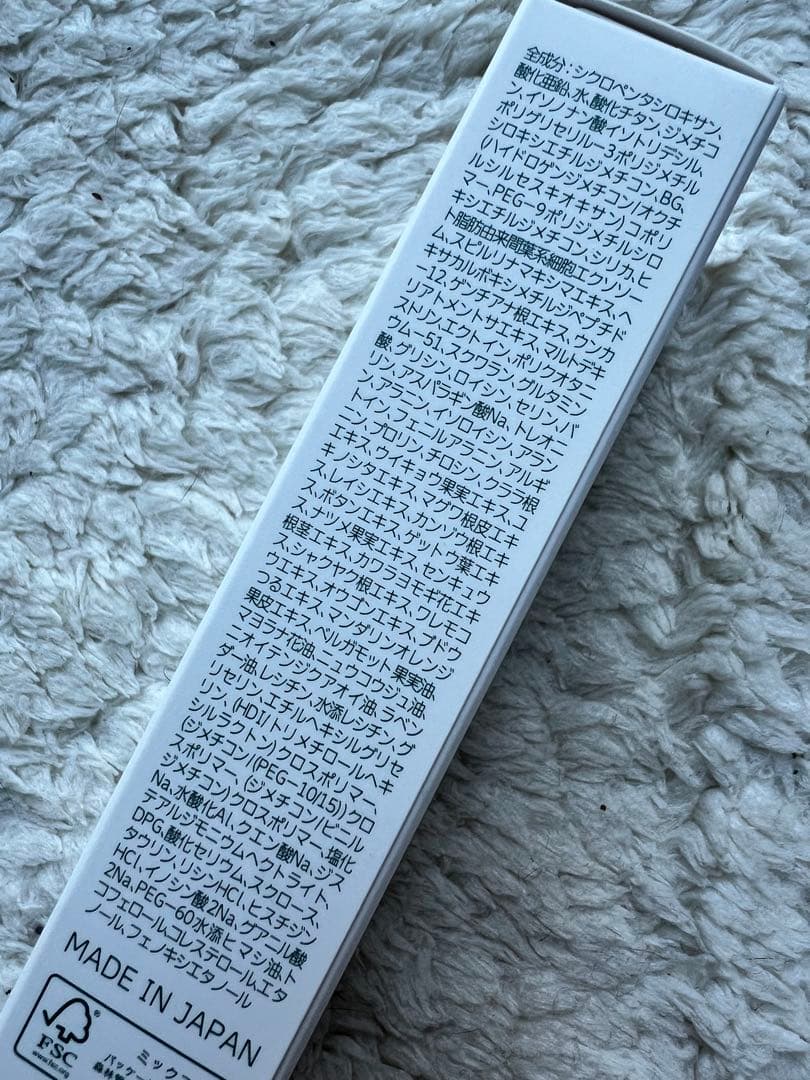 全成分：シクロペンタシロキサン、
酸化亜鉛、水、酸化チタン、ジメチコ
ン、イソノナン酸イソトリデシル、
ポリグリセリル－3ポリジメチル
シロキシエチルジメチコン、BG、
(ハイドロゲンジメチコン/オクチ
ルシルセスキオキサン)コポリ
マー、PEG－9ポリジメチルシロ
キシエチルジメチコン、シリカ、ヒ
ト脂肪由来間葉系細胞エクソソー
ム、スピルリナマキシマエキス、ヘ
キサカルボキシメチルジペプチド
－12、ゲンチアナ根エキス、ウンカ
リアトメントサエキス、マルトデキ
ストリン、エクトイン、ポリクオタニ
ウム－51、スクワラン、グルタミン
酸、グリシン、ロイシン、セリン、バ
リン、アスパラギン酸Na、トレオー
ン、アラニン、イソロイシン、アラン
トイン、フェニルアラニン、アルギ
ニン、プロリン、チロシン、クララ根
エキス、ウイキョウ果実エキス、ユ
キノシタエキス、マグワ根皮エキ
ス、レイシエキス、カンゾウ根エキ
ス、ボタンエキス、ゲットウ葉エキ
ス、ナツメ果実エキス、センキュウ
根茎エキス、カワラヨモギ花エキ
ス、シャクヤク根エキス、クレモコ
ウエキス、オウゴンエキス、ブドウ
つるエキス、マンダリンオレンジ
果皮エキス、ベルガモット果実油、
マヨラナ花油、ニュウコウジュ油、
ニオイテンジクアオイ油、ラベン
ダー油、レシチン、水添レシチン、グ
リセリン、エチルヘキシルグリセ
リン、(HDI/トリメチロールヘキ
シルラクトン)クロスポリマー、
(ジメチコン/(PEG－10/15))クロ
スポリマー、(ジメチコン/ビニル
ジメチコン)クロスポリマー、塩化
Na、水酸化Al、クエン酸Na、ジス
テアルジモニウムヘクトライト、
DPG、酸化セリウム、スクロース、
タウリン、リシンHCl、ヒスチジン
HCl、イノシン酸2Na、グアニル酸
2Na、PEG－60水添ヒマシ油、ト
コフェロール、コレステロール、エタ
ノール、フェノキシエタノール
MADE IN JAPAN
FSC
www.fsc.org
ミックス
パッケー